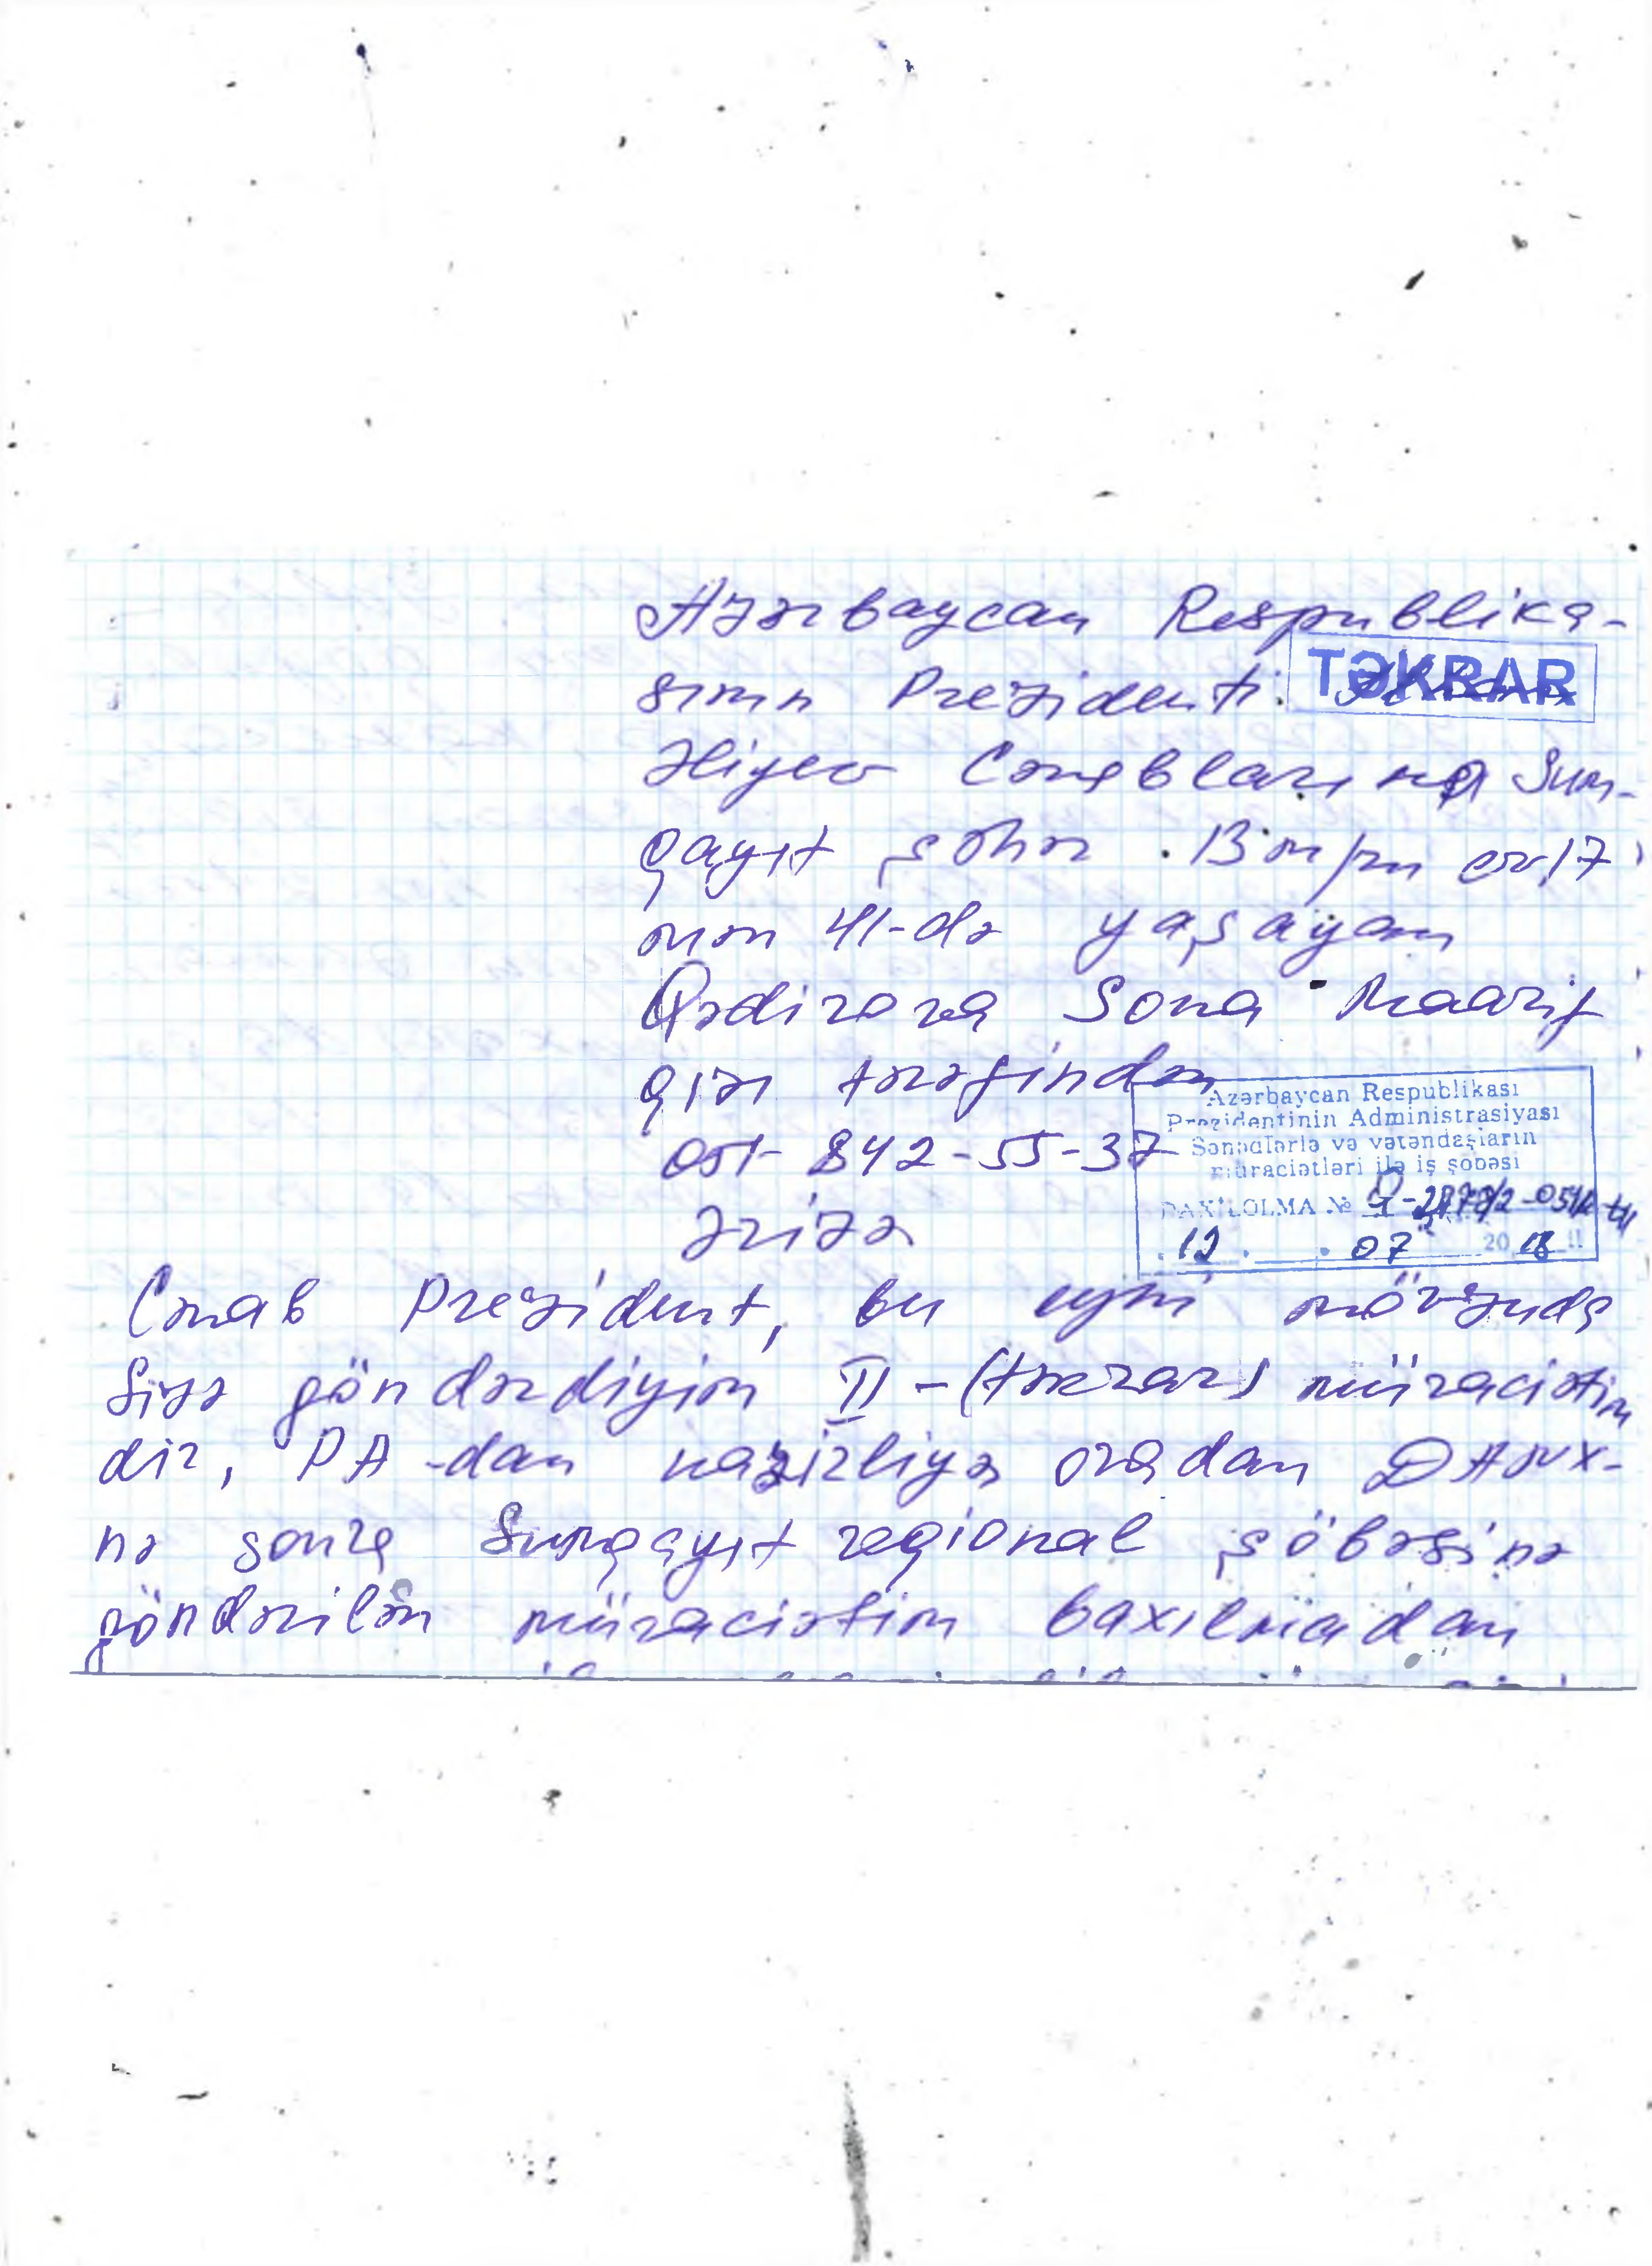 Azərbaycan Respublika-
sının Prezidenti İlham
TƏKRAR
Əliyev Cənablarına Sum-
qayıt şəhər 13 m/rn ev 17
mən 41-də yaşayan
Qədirova Sona Maarif
qızı tərəfindən
051-842-55-37
Azərbaycan Respublikası
Prezidentinin Administrasiyası
Sənədlərlə və vətəndaşların
müraciətləri ilə iş şöbəsi
DAXİLOLMA №
12 . 07 2018
Ərizə
Cənab Prezident, bu eyni mövzuda
Sizə göndərdiyim II-(təkrar) müraciətim
dir, PA-dan nazirliyə oradan DANX-
nə sonra Sumqayıt regional şöbəsinə
göndərilən müraciətim baxılmadan